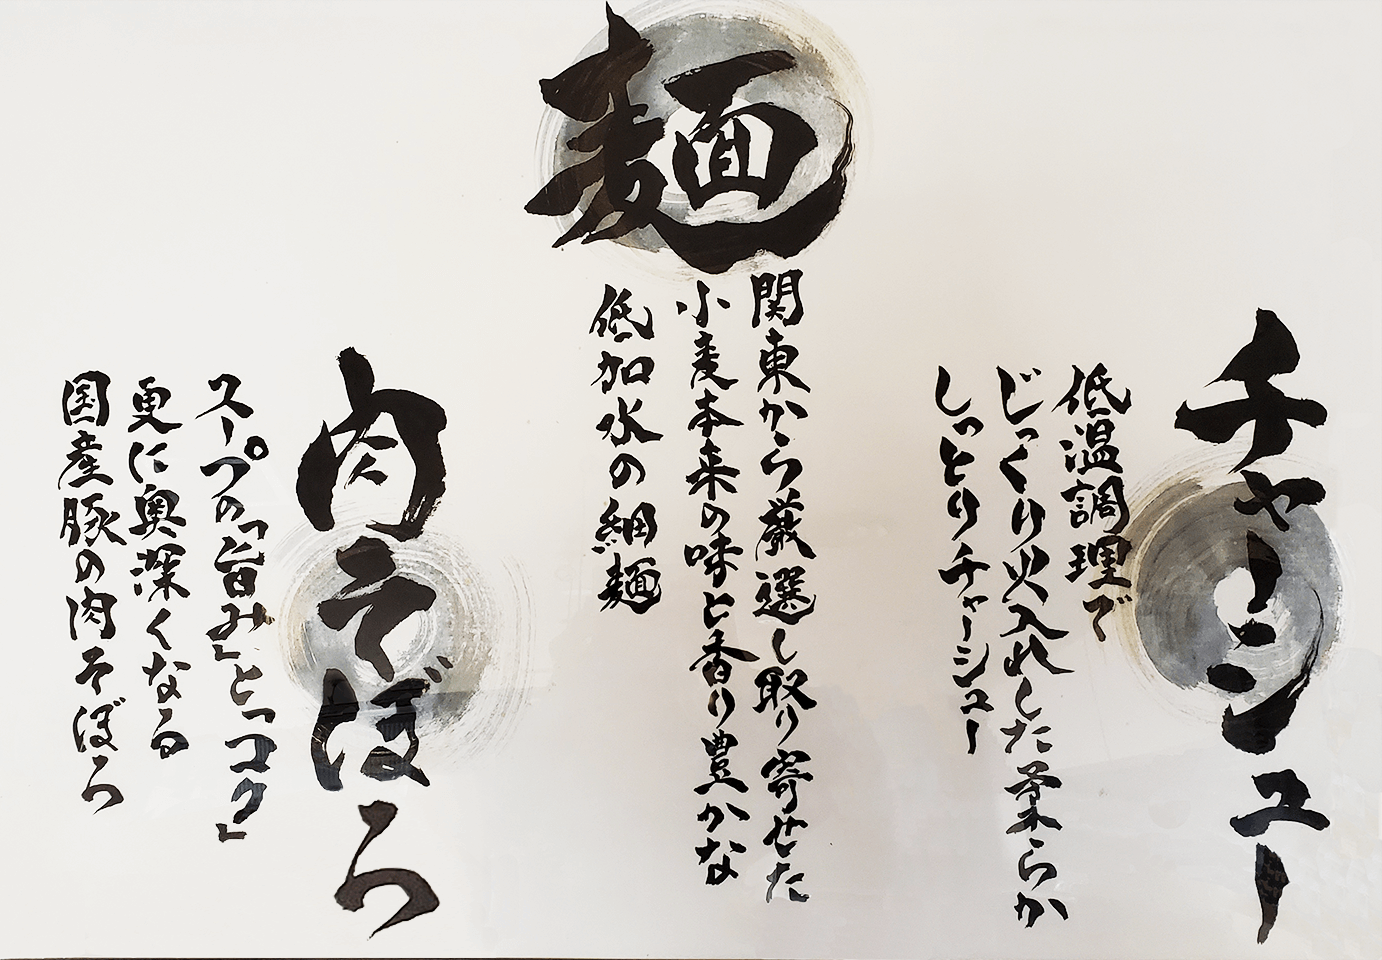 チャーシュー
低温調理で
じっくり火入れした柔らか
しっとりチャーシュー
麺
関東から厳選し取り寄せた
小麦本来の味と香り豊かな
低加水の細麺
肉そぼろ
スープの「旨み」と「コク」
更に奥深くなる
国産豚の肉そぼろ